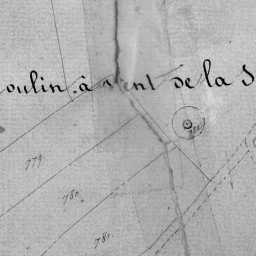 oulin à vent de la S
779.
780.
781.